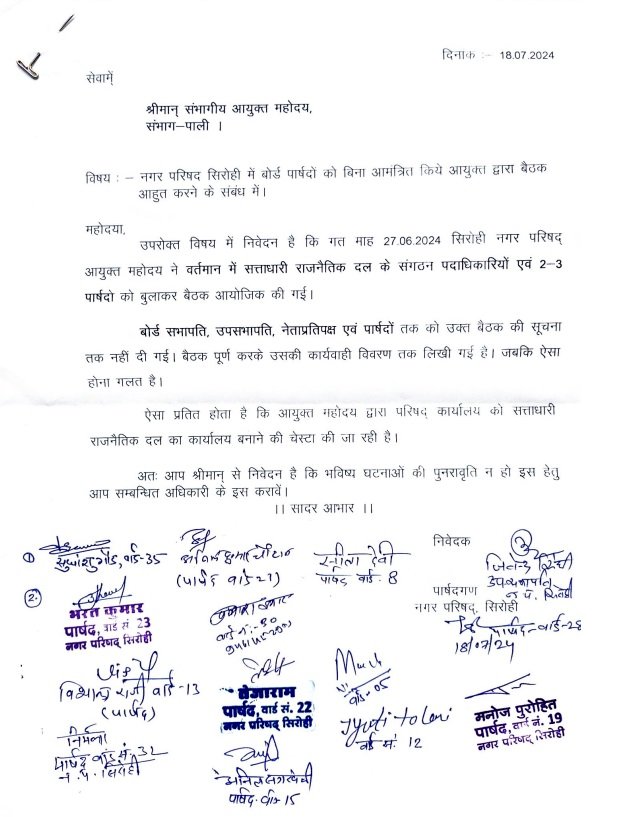 दिनाक :- 18.07.2024
सेवामें
श्रीमान् संभागीय आयुक्त महोदय,
संभाग-पाली ।
विषय : - नगर परिषद सिरोही में बोर्ड पार्षदों को बिना आमंत्रित किये आयुक्त द्वारा बैठक
आहुत करने के संबंध में।
महोदया,
उपरोक्त विषय में निवेदन है कि गत माह 27.06.2024 सिरोही नगर परिषद्
आयुक्त महोदय ने वर्तमान में सत्ताधारी राजनैतिक दल के संगठन पदाधिकारियों एवं 2-3
पार्षदो को बुलाकर बैठक आयोजिक की गई।
बोर्ड सभापति, उपसभापति, नेताप्रतिपक्ष एवं पार्षदों तक को उक्त बैठक की सूचना
तक नहीं दी गई। बैठक पूर्ण करके उसकी कार्यवाही विवरण तक लिखी गई है। जबकि ऐसा
होना गलत है।
ऐसा प्रतित होता है कि आयुक्त महोदय द्वारा परिषद् कार्यालय को सत्ताधारी
राजनैतिक दल का कार्यालय बनाने की चेस्टा की जा रही है।
अतः आप श्रीमान् से निवेदन है कि भविष्य घटनाओं की पुनरावृति न हो इस हेतु
आप सम्बन्धित अधिकारी के इस करावें।
।। सादर आभार ।।
निवेदक
① सुधांशु गौड़, वार्ड-35
(पार्षद वार्ड 27)
पार्षद वार्ड 8
उपसभापति
पार्षदगण
नगर परिषद्, सिरोही
②
भरत कुमार
पार्षद, वार्ड सं. 23
नगर परिषद् सिरोही
वार्ड नं.-30
पार्षद-वार्ड-28
18/07/24
वार्ड-13
(पार्षद)
वेनाराम
पार्षद, वार्ड सं. 22
नगर परिषद् सिरोही
वार्ड-05
Jyoti
वार्ड सं. 12
मनोज पुरोहित
पार्षद, वार्ड नं. 19
नगर परिषद् सिरोही
निर्मला
पार्षद वार्ड सं. 32
न. प. सिरोही
पार्षद. वार्ड 15